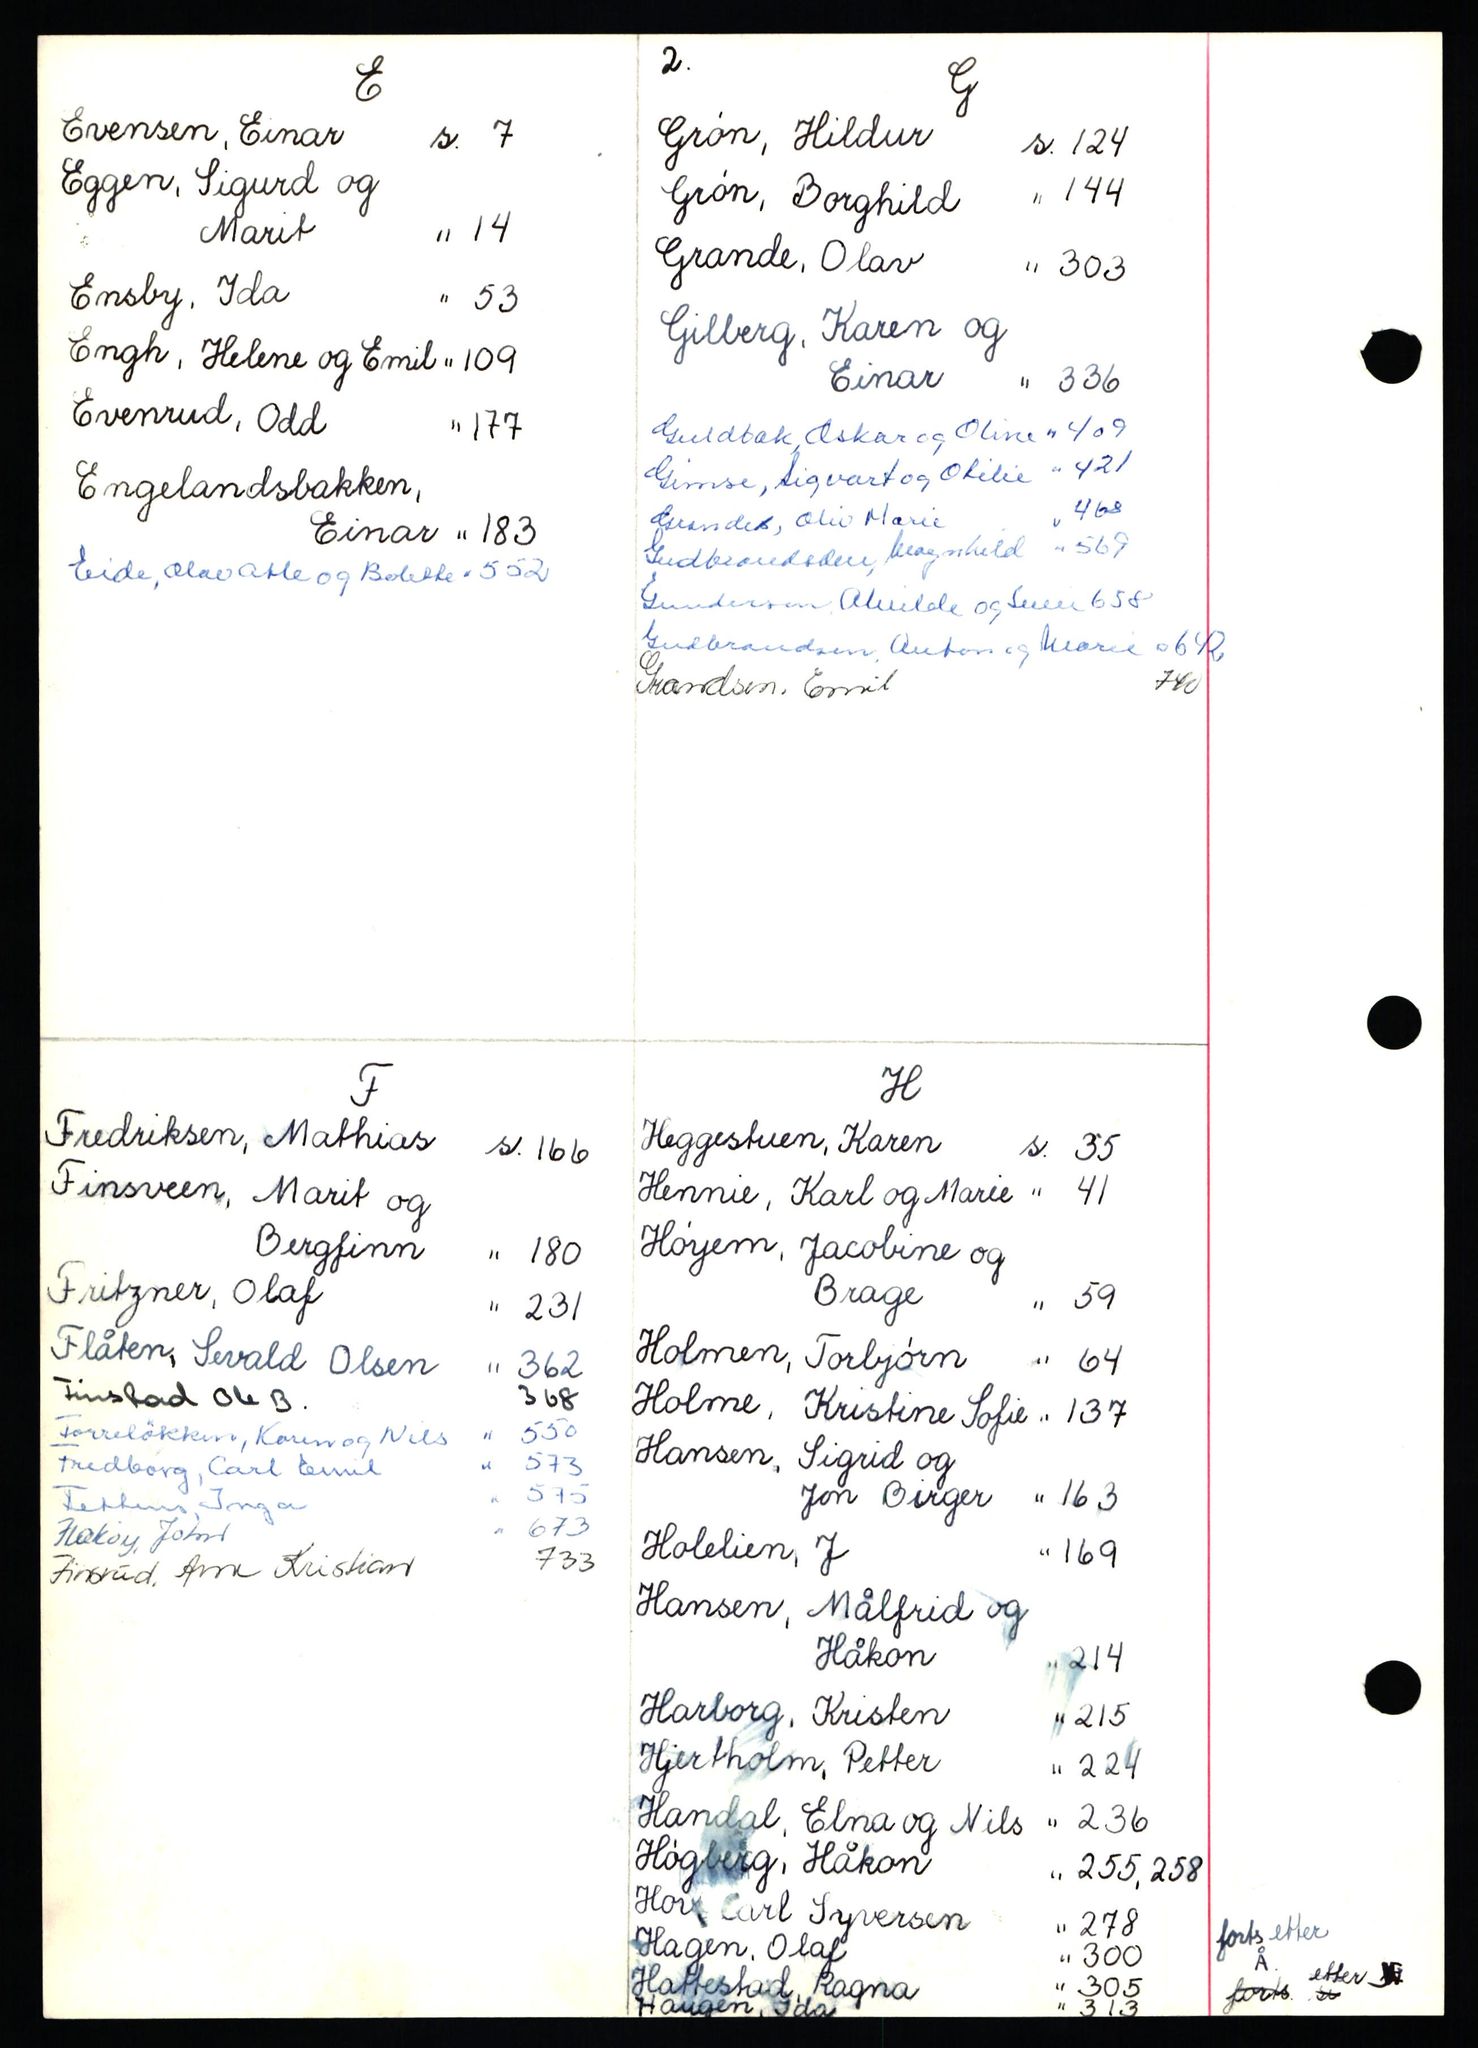 E
Evensen, Einar s. 7
Eggen, Sigurd og
Marit " 14
Ensby, Ida " 53
Engh, Helene og Emil " 109
Evenrud, Odd " 177
Engelandsbakken,
Einar " 183
Eide, Olav Atle og Bolette " 552
F
Fredriksen, Mathias s. 166
Finsveen, Marit og
Bergfinn " 180
Fritzner, Olaf " 231
Flåten, Sevald Olsen " 362
Finstad Ole B. 368
Forreløkken, Karen og Nils " 550
Fredborg, Carl Emil " 573
Inga " 575
Flakøy, John " 673
Finsrud, Arne Kristian 733
2.
G
Grón, Hildur s. 124
Grón, Borghild " 144
Grande, Olav " 303
Gilberg, Karen og
Einar " 336
Guldbak, Oskar og Oline " 409
Gimse, Sigvart og Otilie " 421
Grande, Oliv Marie " 468
Gudbrandsen, Magnhild " 569
Gundersen, og 658
Gudbrandsen, Anton og Marie " 642
Grandsen, Emil 740
H
Heggestuen, Karen s. 35
Hennie, Karl og Marie " 41
Hóyem, Jacobine og
Brage " 59
Holmen, Torbjórn " 64
Holme, Kristine Sofie " 137
Hansen, Sigrid og
Jon Birger " 163
Holelien, J " 169
Hansen, Målfrid og
Håkon " 214
Harborg, Kristen " 215
Hjertholm, Petter " 224
Handal, Elna og Nils " 236
Hógberg, Håkon " 255, 258
Hov, Carl Syversen " 278
Hagen, Olaf " 300
Hattestad, Ragna " 305
Haugen, Ida " 313
forts etter
Å.
forts. etter